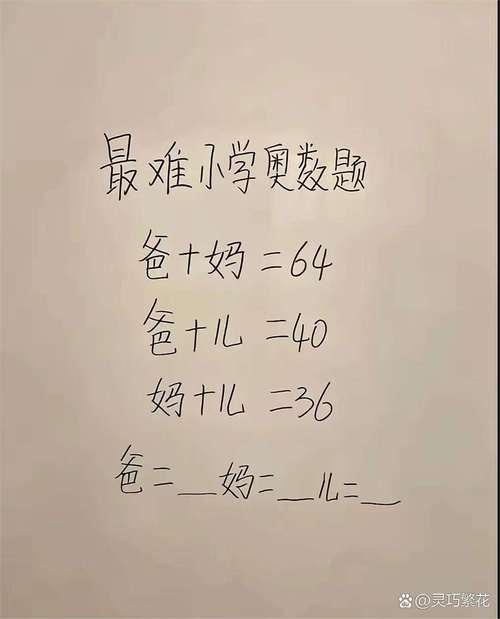 最难小学奥数题
爸+妈=64
爸+儿=40
妈+儿=36
爸=__妈=__儿=__
@灵巧繁花